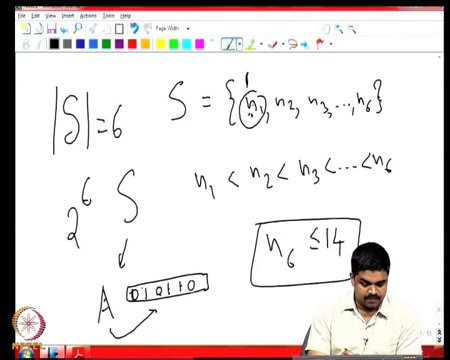 File Edit View Insert Actions Tools Help
Page Width
|S| = 6
1
S = {n₁, n₂, n₃, ..., n₆}
n₁ < n₂ < n₃ < ... < n₆
2⁶ S
n₆ ≤ 14
A 010110